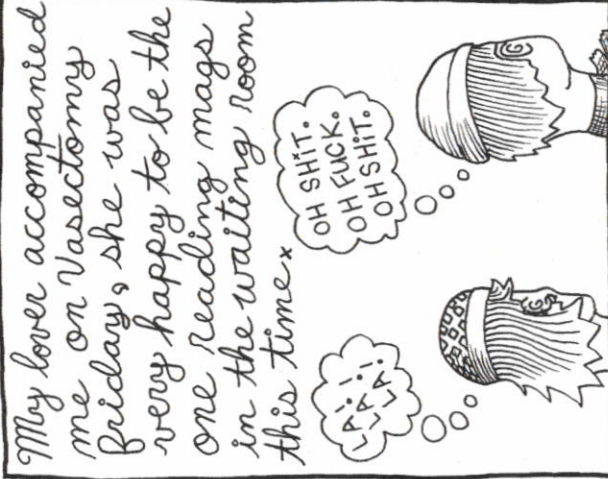 My lover accompanied
me on Vasectomy
friday, she was
very happy to be the
one reading mags
in the waiting room
this time*
LA. i. i.
LA LA!
OH SHiT.
OH FUCK.
OH SHiT.